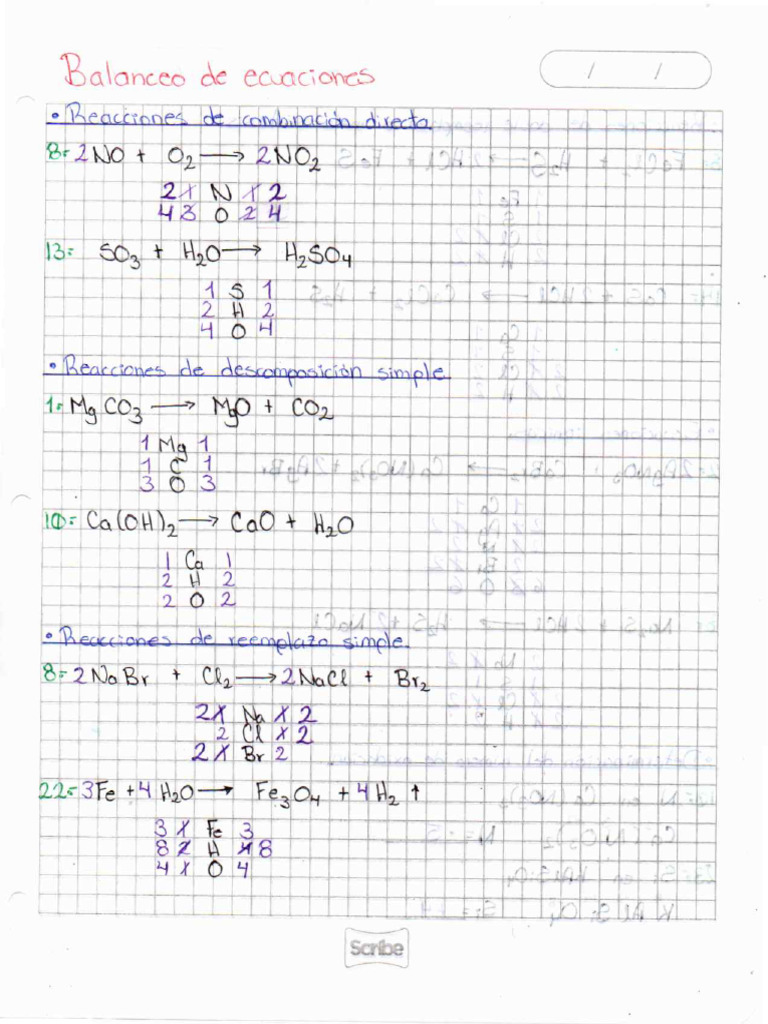 Balanceo de ecuaciones
/ /
• Reacciones de combinación directa.
8= 2NO + O₂ → 2NO₂
2 1 N 1 2
4 3 O 2 4
13= SO₃ + H₂O → H₂SO₄
1 S 1
2 H 2
4 O 4
• Reacciones de descomposición simple.
1= MgCO₃ → MgO + CO₂
1 Mg 1
1 C 1
3 O 3
10= Ca(OH)₂ → CaO + H₂O
1 Ca 1
2 H 2
2 O 2
• Reacciones de reemplazo simple.
8= 2NaBr + Cl₂ → 2NaCl + Br₂
2 1 Na 1 2
2 Cl 1 2
2 1 Br 2
22= 3Fe + 4H₂O → Fe₃O₄ + 4H₂ ↑
3 1 Fe 3
8 2 H 4 8
4 1 O 4
Scribe